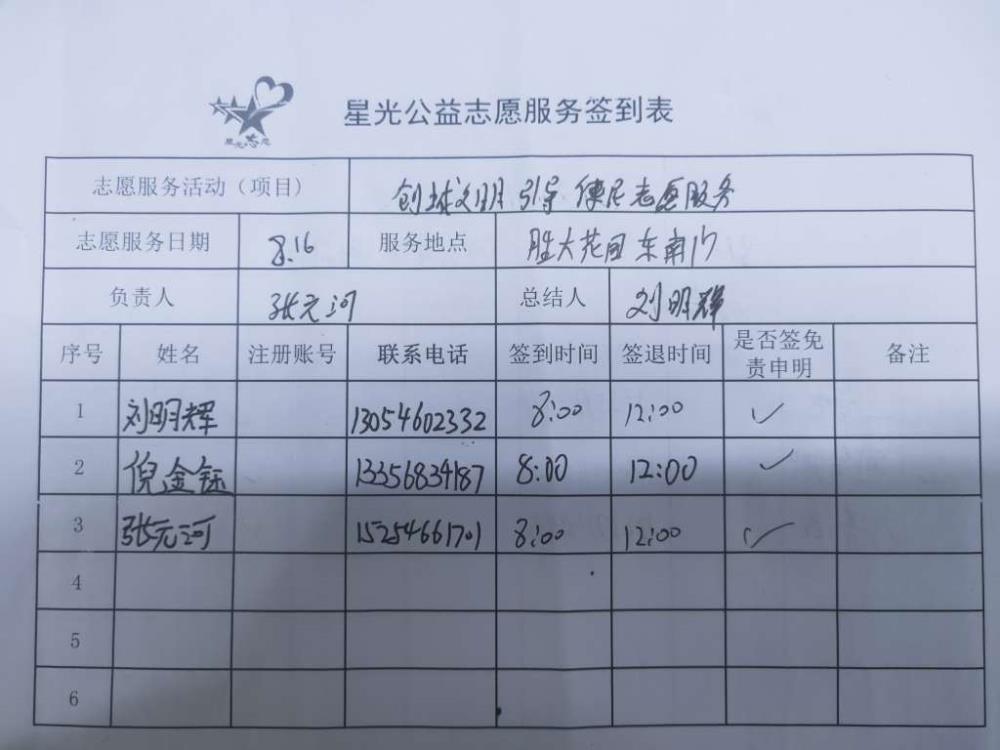 星光志愿
星光公益志愿服务签到表
志愿服务活动（项目） 创城文明引导 便民志愿服务
志愿服务日期 8.16 服务地点 胜大花园东南门
负责人 张元河 总结人 刘明辉
序号 姓名 注册账号 联系电话 签到时间 签退时间 是否签免责申明 备注
1 刘明辉 13054602332 8:00 12:00 ✓
2 倪金钰 13356834187 8:00 12:00 ✓
3 张元河 15254661701 8:00 12:00 ✓
4
5
6